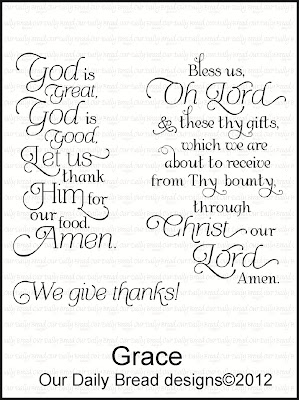 God is
great,
God is
good,
Let us
thank
Him for
our
food.
Amen.
We give thanks!
Bless us,
Oh Lord,
& these thy gifts,
which we are
about to receive
from Thy bounty,
through
Christ our
Lord
Amen.
Grace
Our Daily Bread designs©2012